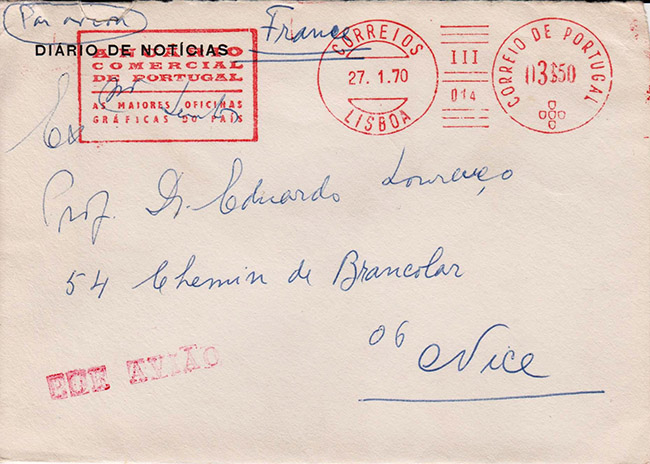 Par avion
France
DIÁRIO DE NOTÍCIAS
ANUÁRIO
COMERCIAL
DE PORTUGAL
AS MAIORES OFICINAS
GRÁFICAS DO PAÍS
CORREIOS
27. 1.70
LISBOA
III
014
CORREIO DE PORTUGAL
03$50
Prof. Dr. Eduardo Lourenço
54 Chemin de Brancolar
06
Nice
POR AVIÃO